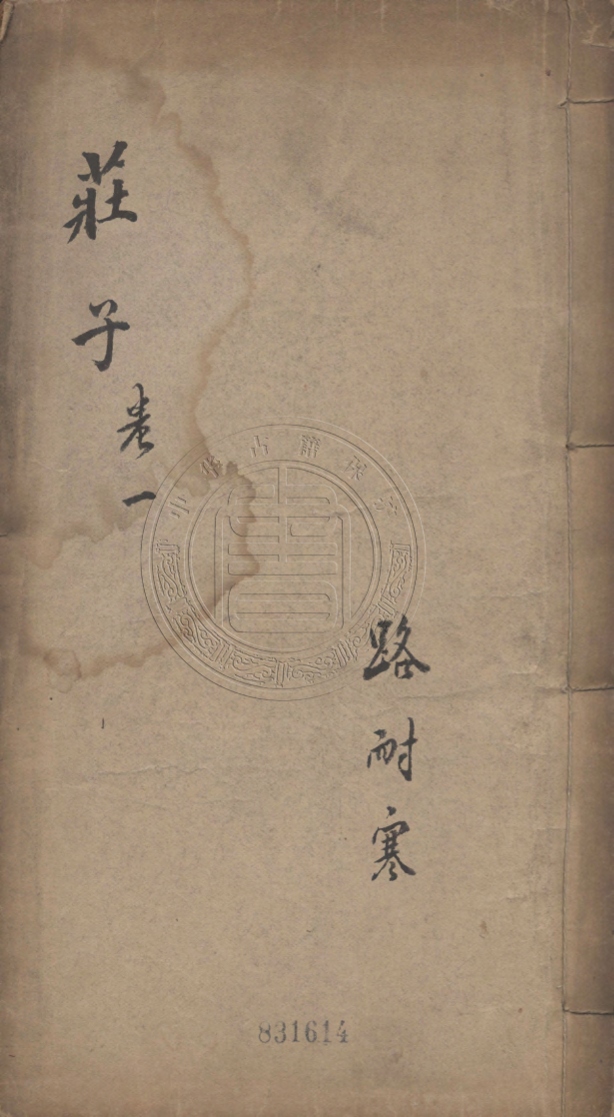 莊子卷一
路耐寒
831614